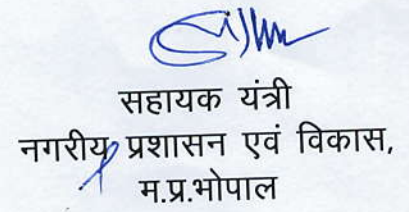 सहायक यंत्री
नगरीय प्रशासन एवं विकास,
म.प्र.भोपाल